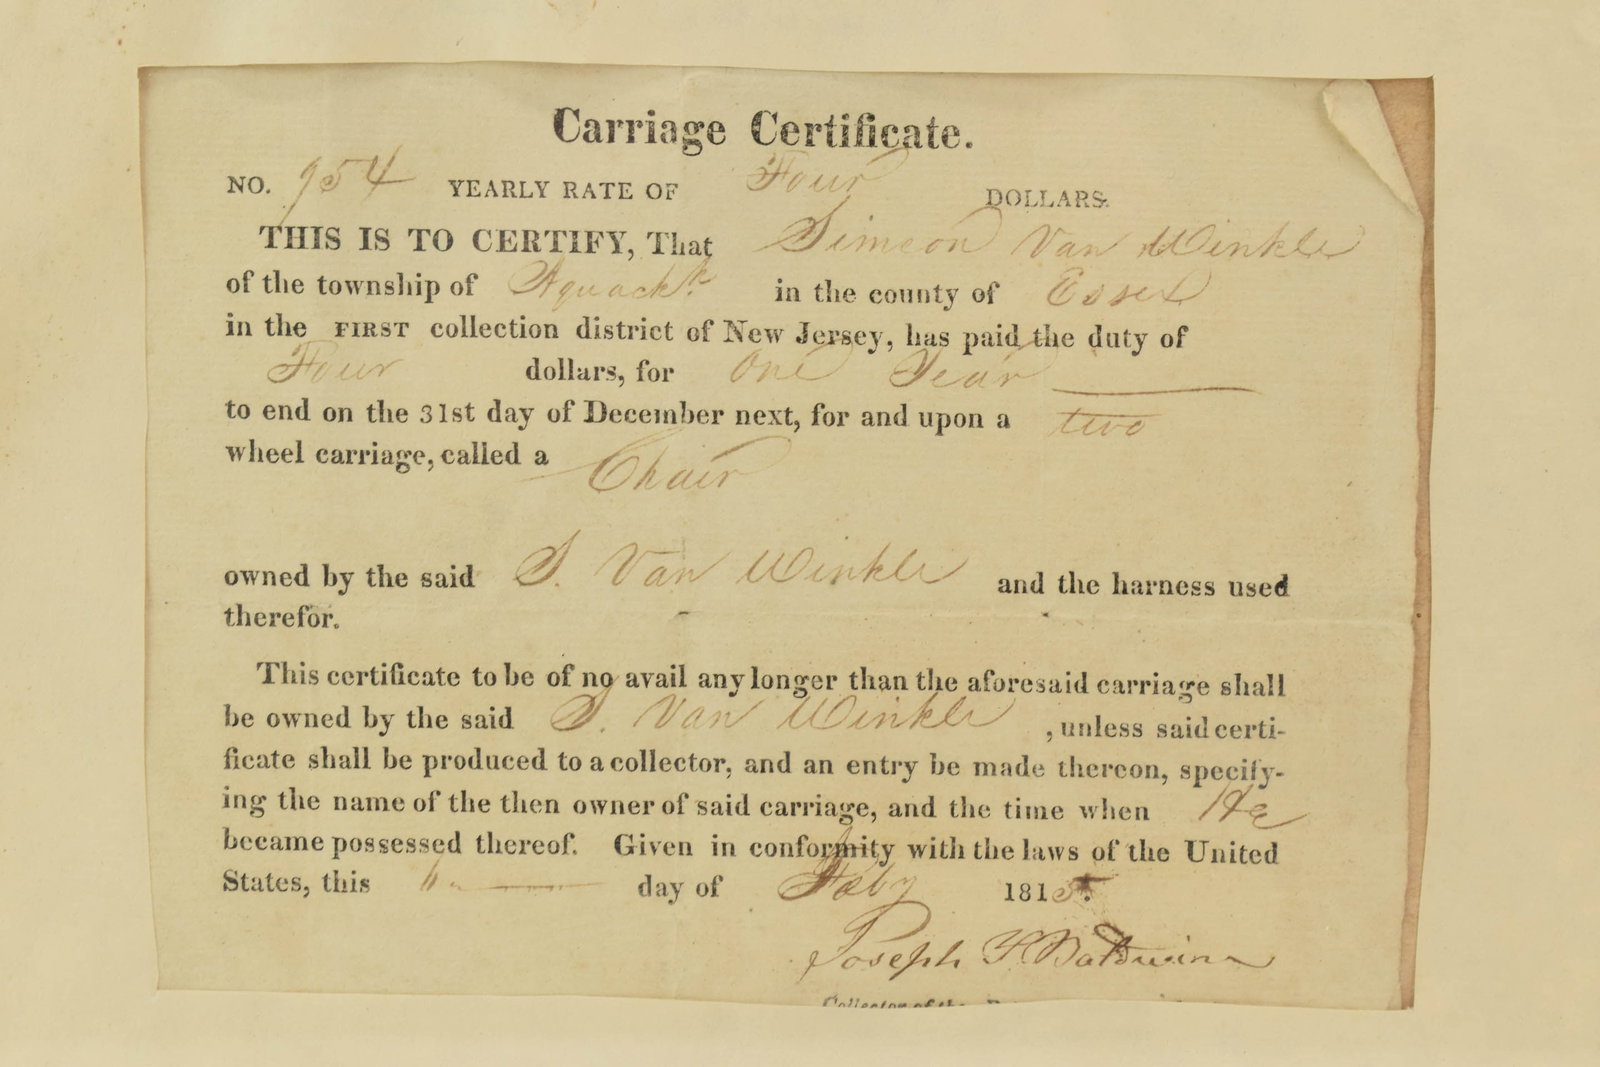 Carriage Certificate.
NO. 954 YEARLY RATE OF Four DOLLARS.
THIS IS TO CERTIFY, That Simeon Van Winkle
of the township of Aquackk. in the county of Essex
in the FIRST collection district of New Jersey, has paid the duty of
Four dollars, for One Year
to end on the 31st day of December next, for and upon a two
wheel carriage, called a Chair
owned by the said S. Van Winkle and the harness used
therefor.
This certificate to be of no avail any longer than the aforesaid carriage shall
be owned by the said S. Van Winkle , unless said certi-
ficate shall be produced to a collector, and an entry be made thereon, specify-
ing the name of the then owner of said carriage, and the time when He
became possessed thereof. Given in conformity with the laws of the United
States, this day of Feby 1815.
Joseph Baldwin
Collector of the